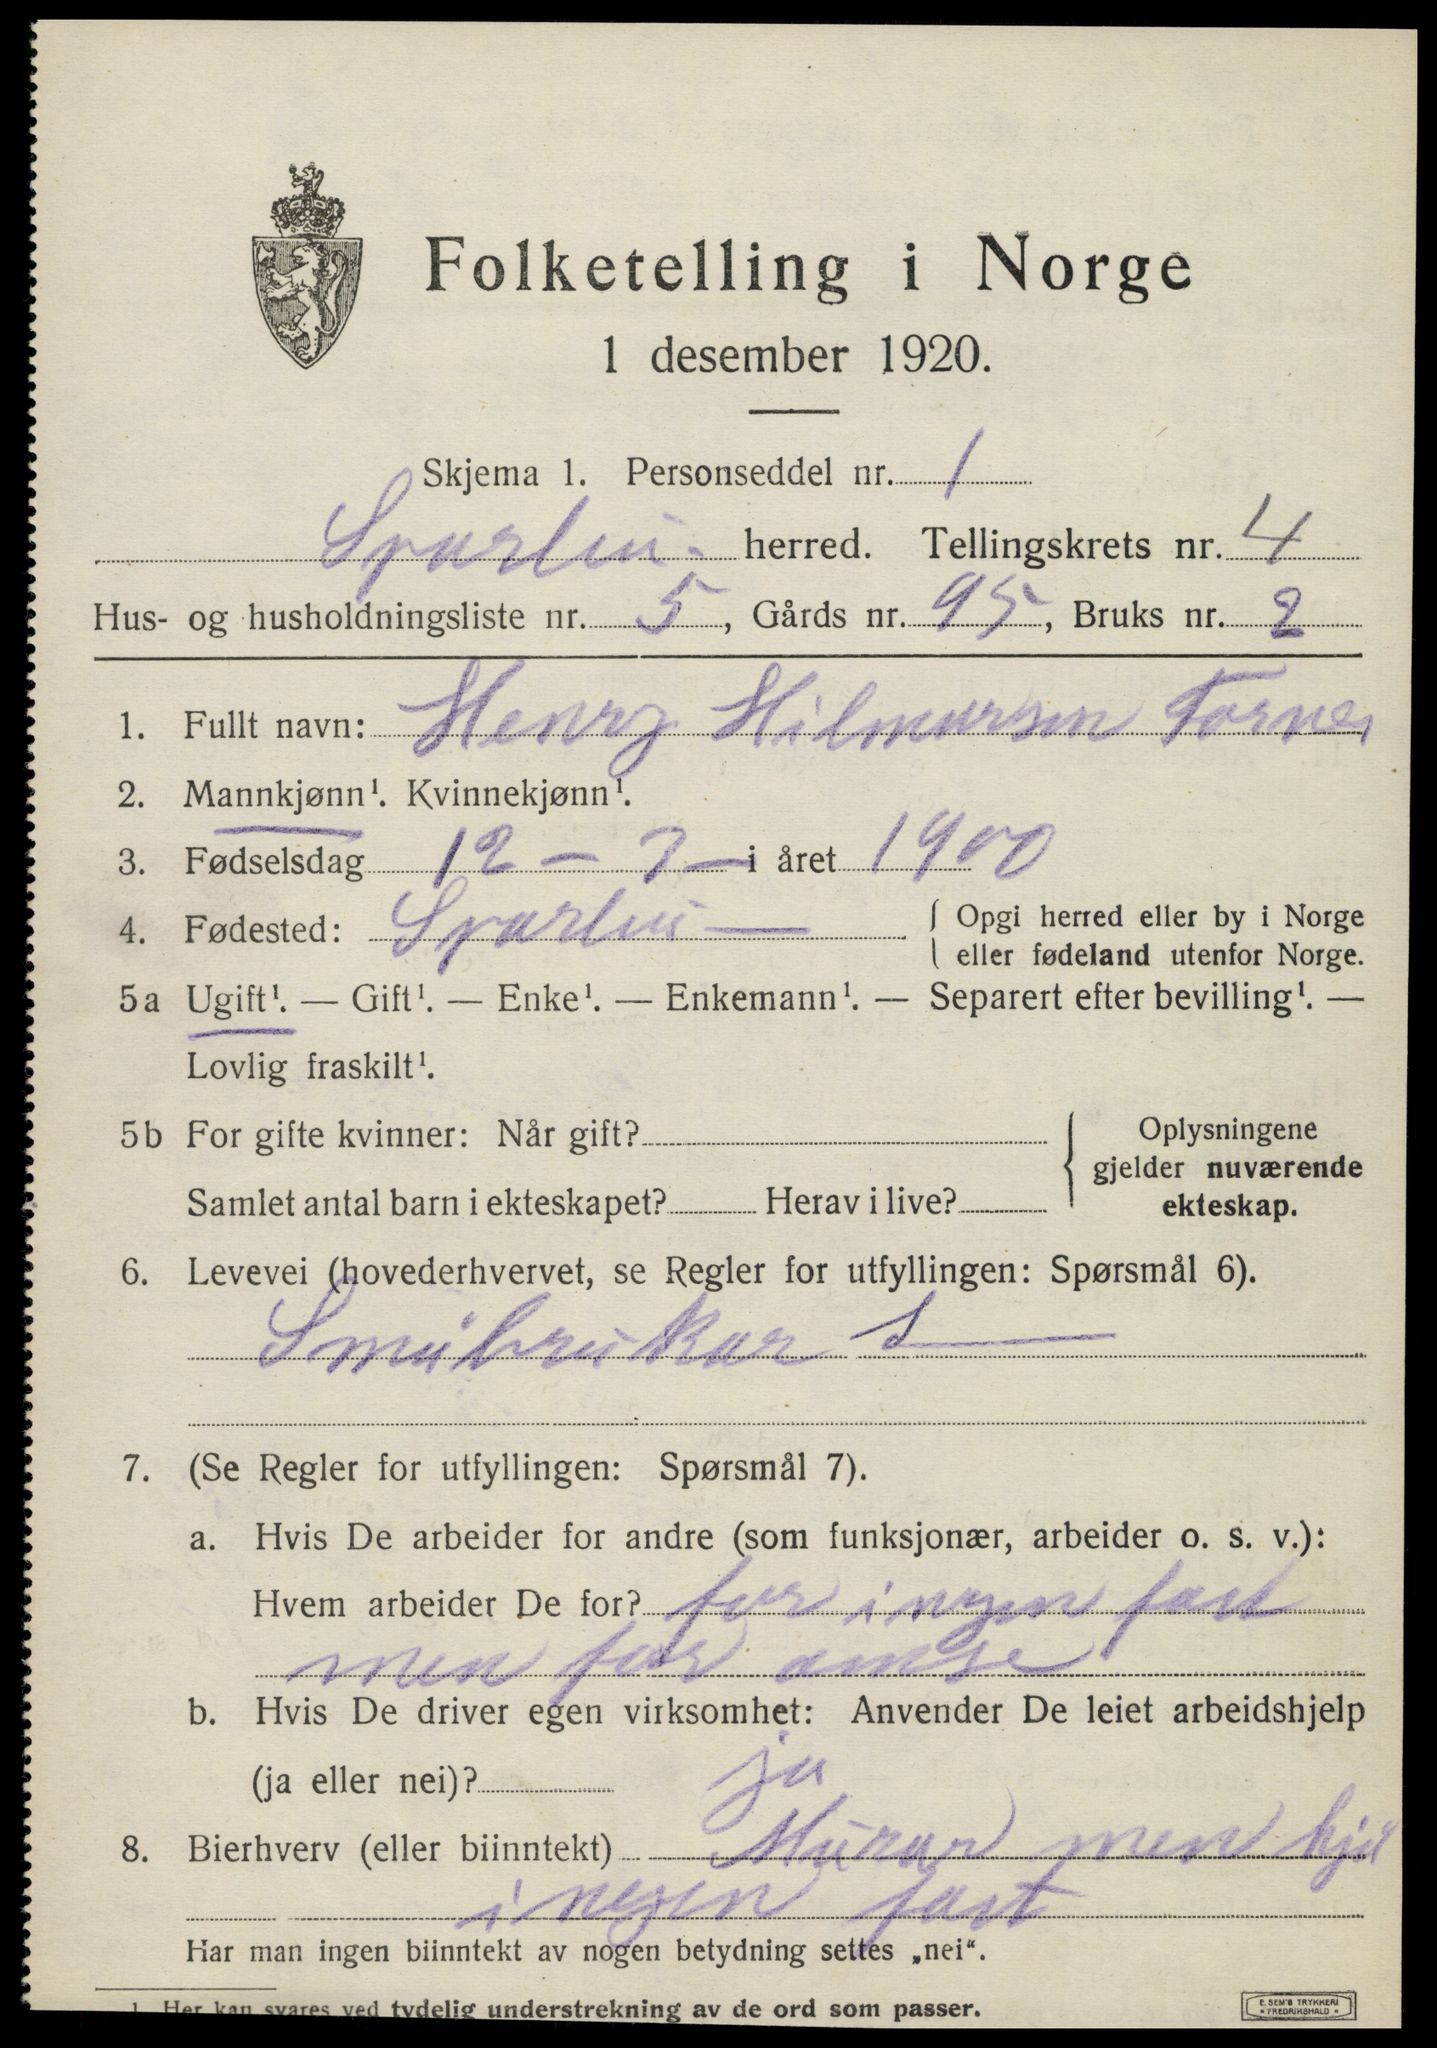 Folketelling i Norge
1 desember 1920.
Skjema 1. Personseddel nr. 1
Sparbu. herred. Tellingskrets nr. 4
Hus- og husholdningsliste nr. 5, Gårds nr. 95, Bruks nr. 2
1. Fullt navn: Henry Hilmarsen Tornes
2. Mannkjønn¹. Kvinnekjønn¹.
3. Fødselsdag 12 - 7 - i året 1900
4. Fødested: Sparbu — { Opgi herred eller by i Norge
eller fødeland utenfor Norge.
5a Ugift¹. — Gift¹. — Enke¹. — Enkemann¹. — Separert efter bevilling¹. —
Lovlig fraskilt¹.
5b For gifte kvinner: Når gift?
Samlet antal barn i ekteskapet? Herav i live?
Oplysningene
gjelder nuværende
ekteskap.
6. Levevei (hovederhvervet, se Regler for utfyllingen: Spørsmål 6).
Småbrukar S
7. (Se Regler for utfyllingen: Spørsmål 7).
a. Hvis De arbeider for andre (som funksjonær, arbeider o. s. v.):
Hvem arbeider De for? for ingen fast
men for
b. Hvis De driver egen virksomhet: Anvender De leiet arbeidshjelp
(ja eller nei)? ja
8. Bierhverv (eller biinntekt) Murar men hjå
ingen fast
Har man ingen biinntekt av nogen betydning settes „nei“.
1. Her kan svares ved tydelig understrekning av de ord som passer.
E. SEM'S TRYKKERI
FREDRIKSHALD